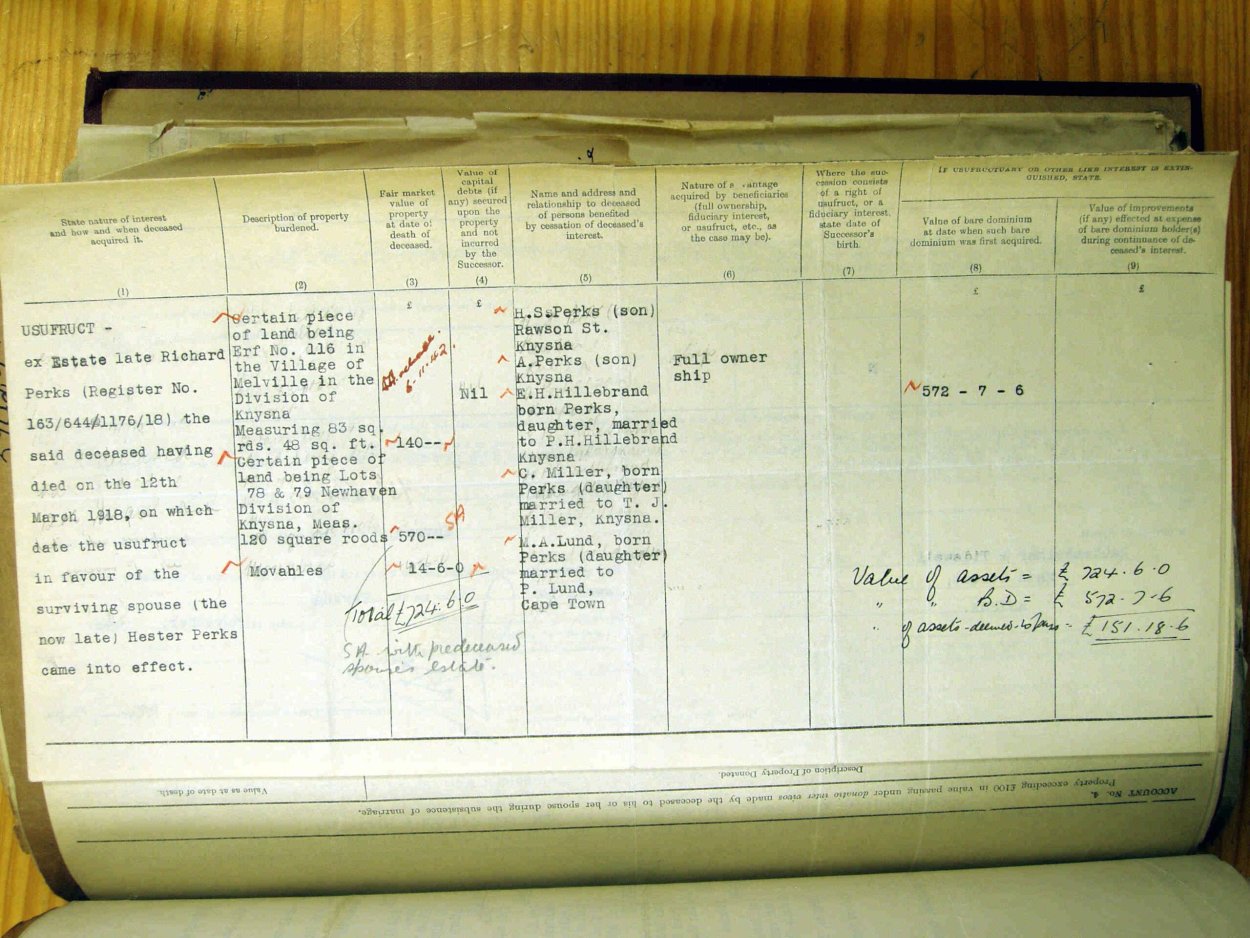 4
State nature of interest
and how and when deceased
acquired it.
(1)
Description of property
burdened.
(2)
Fair market
value of
property
at date of
death of
deceased.
(3)
Value of
capital
debts (if
any) secured
upon the
property
and not
incurred
by the
Successor.
(4)
Name and address and
relationship to deceased
of persons benefited
by cessation of deceased's
interest.
(5)
Nature of advantage
acquired by beneficiaries
(full ownership,
fiduciary interest,
or usufruct, etc., as
the case may be).
(6)
Where the suc-
cession consists
of a right of
usufruct, or a
fiduciary interest,
state date of
Successor's
birth.
(7)
IF USUFRUCTUARY OR OTHER LIKE INTEREST IS EXTIN-
GUISHED, STATE.
Value of bare dominium
at date when such bare
dominium was first acquired.
(8)
Value of improvements
(if any) effected at expense
of bare dominium holder(s)
during continuance of de-
ceased's interest.
(9)
USUFRUCT -
ex Estate late Richard
Perks (Register No.
163/644/1176/18) the
said deceased having
died on the 12th
March 1918, on which
date the usufruct
in favour of the
surviving spouse (the
now late) Hester Perks
came into effect.
Certain piece
of land being
Erf No. 116 in
the Village of
Melville in the
Division of
Knysna
Measuring 83 sq.
rds. 48 sq. ft.
Certain piece of
land being Lots
78 & 79 Newhaven
Division of
Knysna, Meas.
120 square roods
Movables
£
6-11-42
140--
SA
570--
14-6-0
Total £724.6.0
SA with predeceased
spouse's estate.
£
Nil
H.S.Perks (son)
Rawson St.
Knysna
A.Perks (son)
Knysna
E.H.Hillebrand
born Perks,
daughter, married
to P.H.Hillebrand
Knysna
C. Miller, born
Perks (daughter)
married to T. J.
Miller, Knysna.
M.A.Lund, born
Perks (daughter)
married to
P. Lund,
Cape Town
Full owner
ship
£
572 - 7 - 6
£
Value of assets = £ 724.6.0
" " B.D = £ 572.7.6
" of assets deemed to pass = £151.18.6
Description of Property Donated.
Value as at date of death.
ACCOUNT No. 4.
Property exceeding £100 in value passing under donatio inter vivos made by the deceased to his or her spouse during the subsistence of marriage.